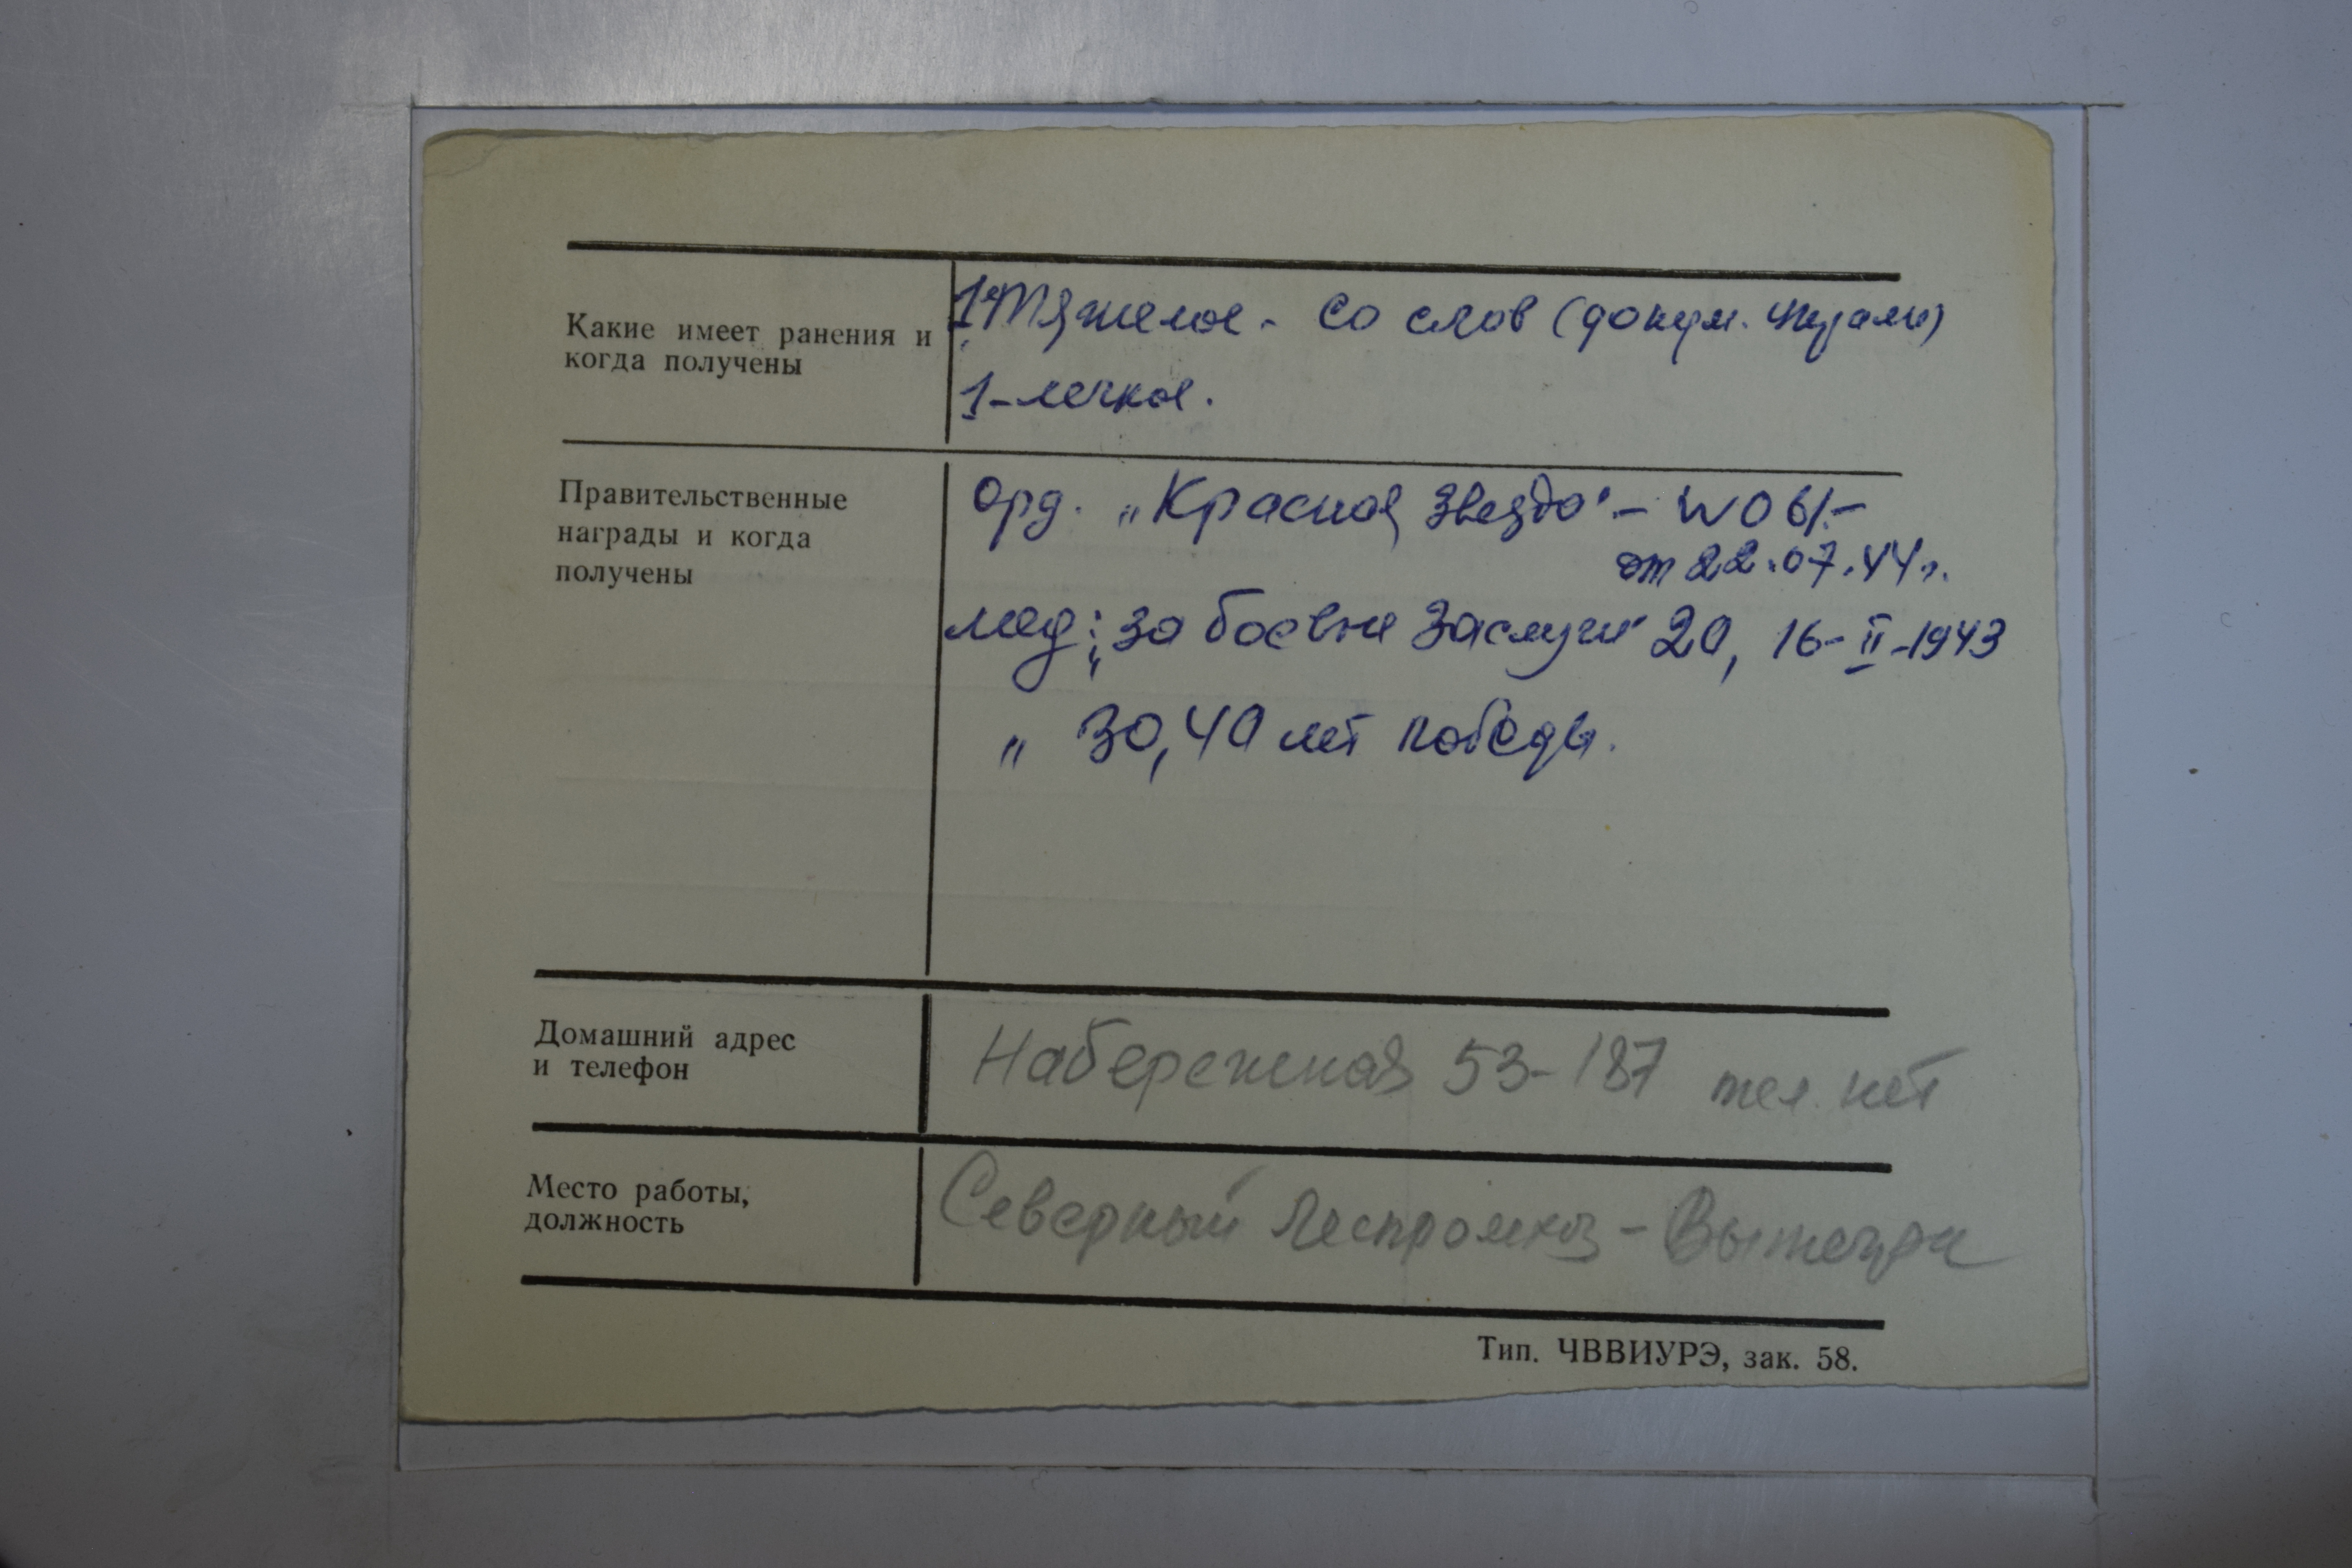 Какие имеет ранения и
когда получены
1 Тяжелое - со слов (докум. утрачен)
1-легкое.
Правительственные
награды и когда
получены
Орд. „Красная Звезда" -
от 22.07.44г.
мед: „За боевые Заслуги" 20, 16-II-1943
„ 30,40 лет победы.
Домашний адрес
и телефон
Набережная 53-187 тел. нет
Место работы,
должность
Северный Леспромхоз - Вытегра
Тип. ЧВВИУРЭ, зак. 58.